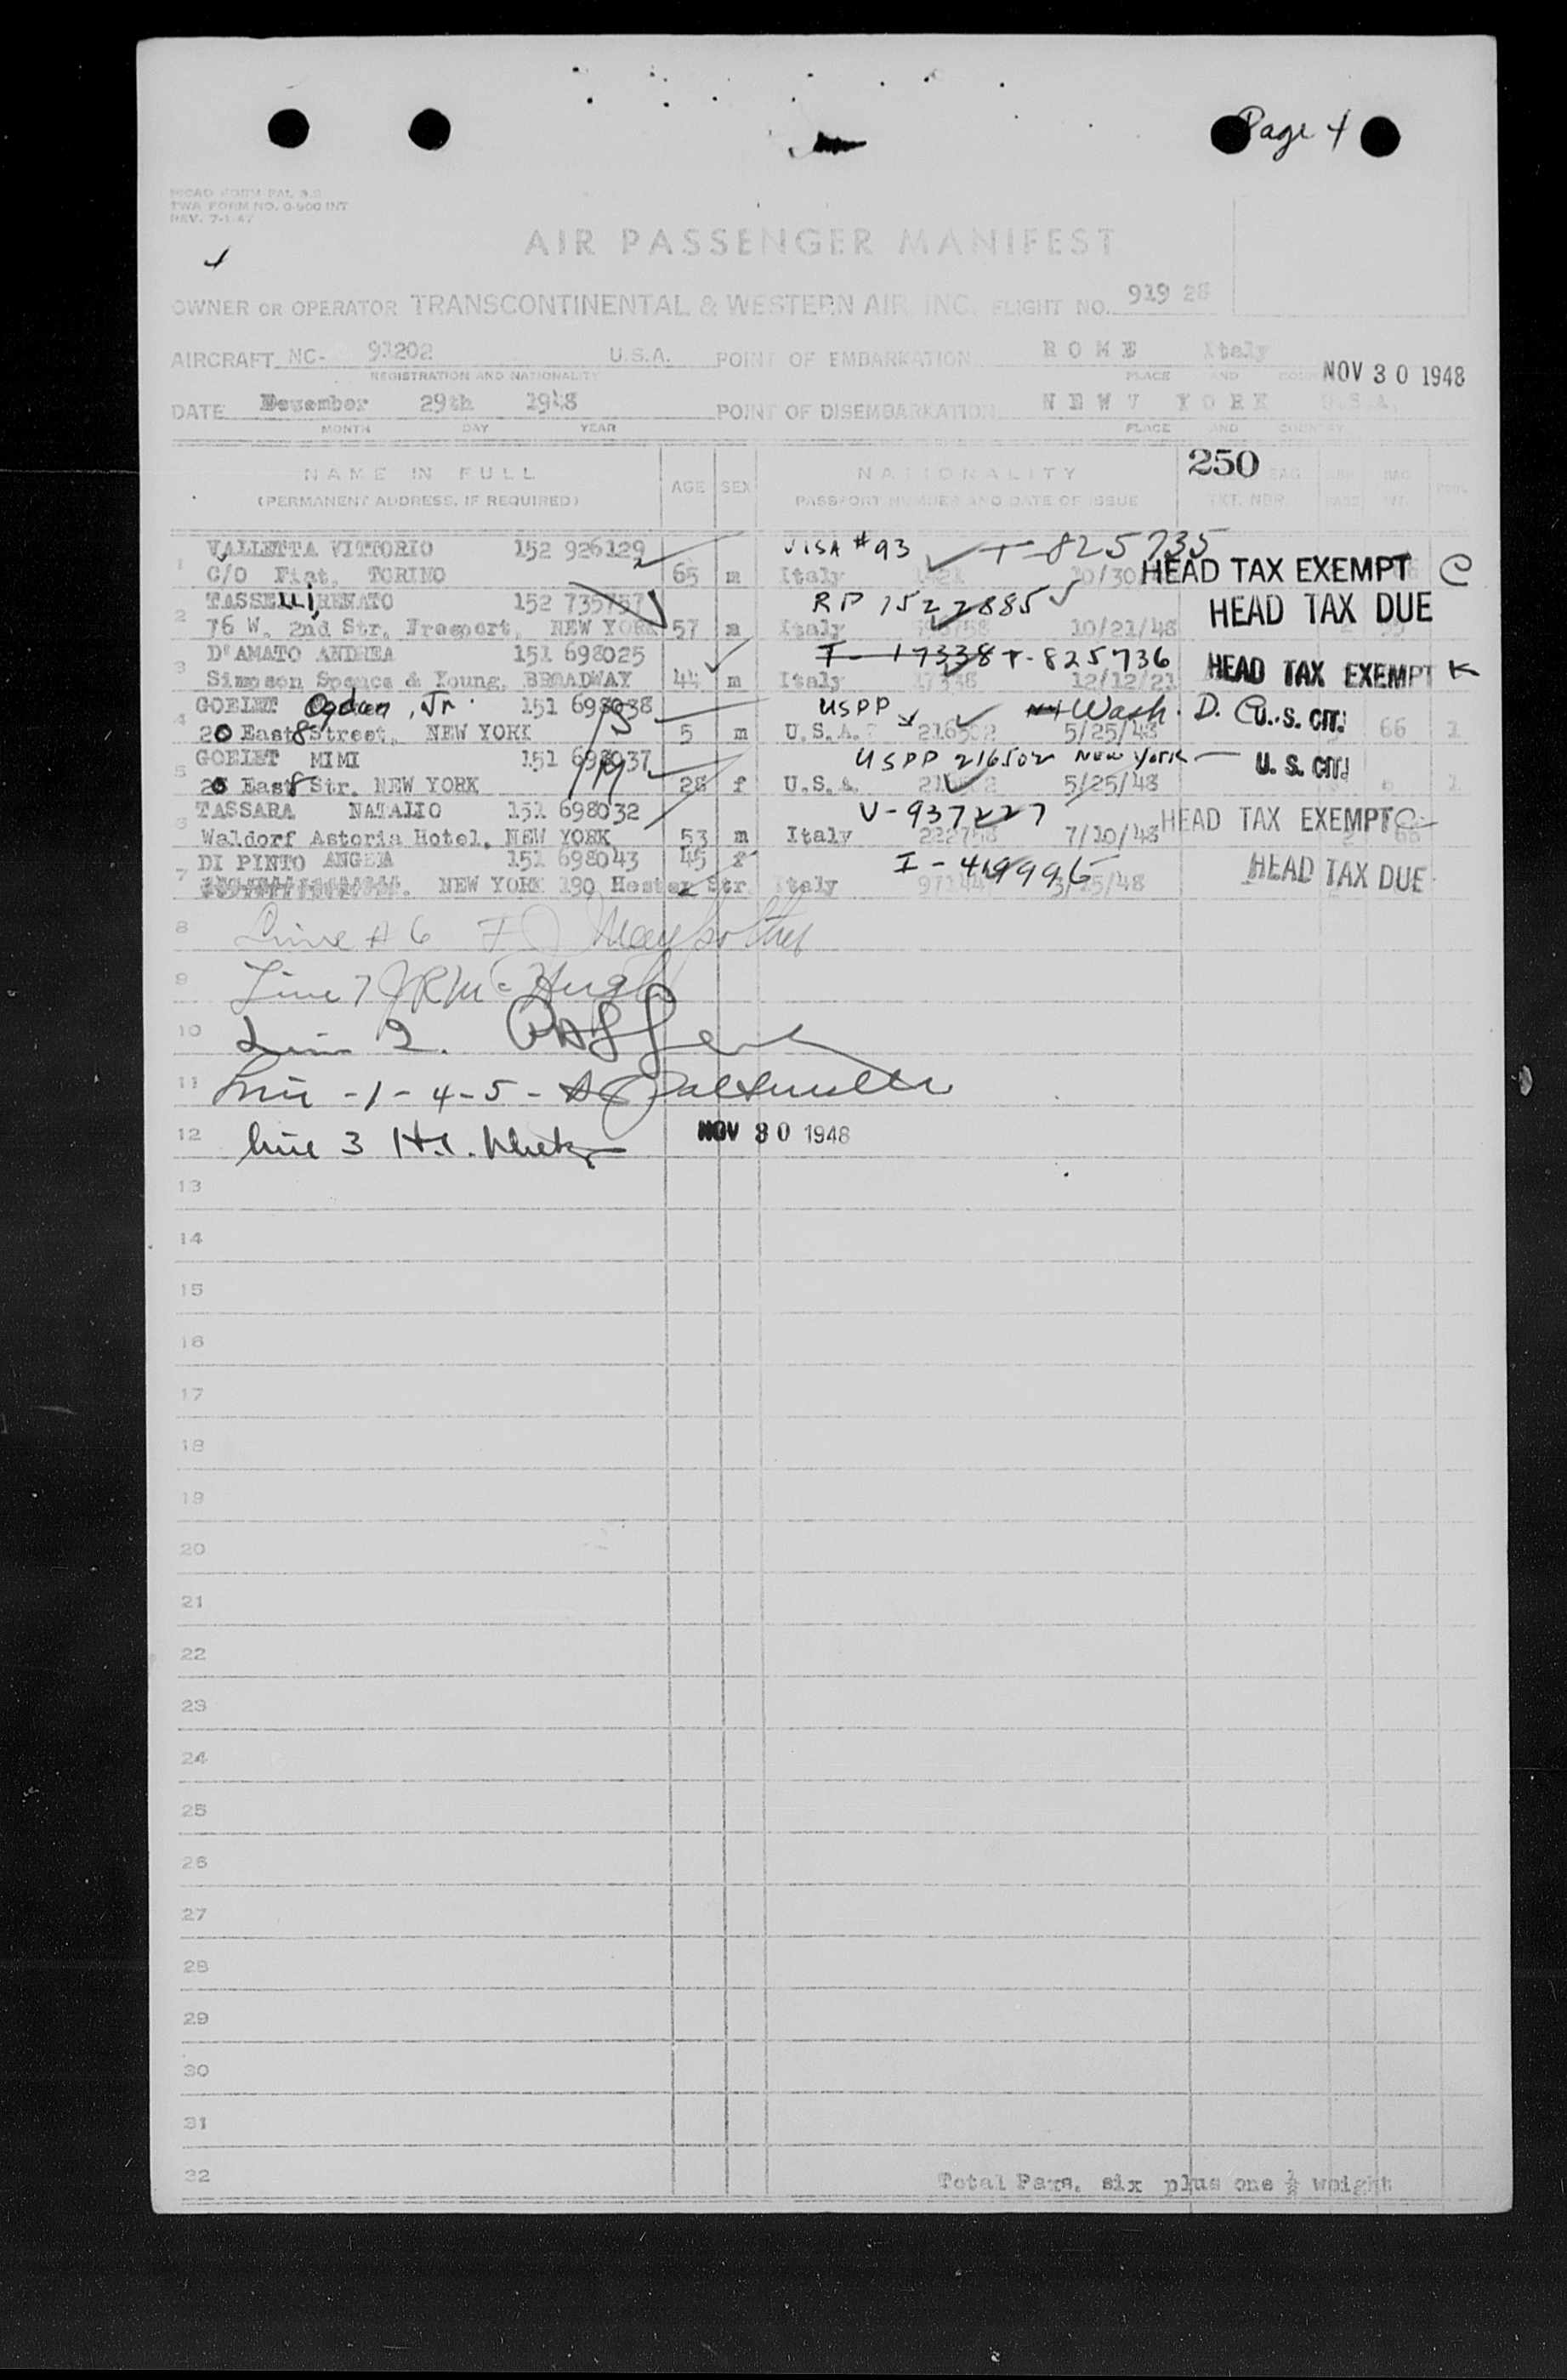 Page 4
ICAO FORM PAL 3.2
TWA FORM NO. 0-900 INT
REV. 7-1-47
AIR PASSENGER MANIFEST
OWNER OR OPERATOR TRANSCONTINENTAL & WESTERN AIR, INC. FLIGHT NO. 919 28
AIRCRAFT NC- 91202 U.S.A. POINT OF EMBARKATION ROME Italy
REGISTRATION AND NATIONALITY PLACE AND COUNTRY
NOV 30 1948
DATE 29th 1948 POINT OF DISEMBARKATION NEW YORK U.S.A.
MONTH DAY YEAR PLACE AND COUNTRY
NAME IN FULL AGE SEX NATIONALITY 250
(PERMANENT ADDRESS, IF REQUIRED) PASSPORT NUMBER AND DATE OF ISSUE TKT. NBR
1 VALLETTA VITTORIO 152 926129 VISA #93 T-825735
C/O Fiat, TORINO 65 m Italy 10/30 HEAD TAX EXEMPT C
2 TASSELLI, RENATO 152 735757 RP 1522885 HEAD TAX DUE
76 W. 2nd Str. Freeport, NEW YORK 57 m Italy 10/21/48
3 D'AMATO ANDREA 151 698025 I-17338 T-825736 HEAD TAX EXEMPT K
Simpson Spence & Young, BROADWAY 44 m Italy 17338 12/12/21
4 GOELET Ogden, Jr. 151 698038 USPP Wash. D.C. U.S. CIT.
20 East 8 Street, NEW YORK 5 m U.S.A. 216502 5/25/48 66 1
5 GOELET MIMI 151 698037 USPP 216502 NEW YORK U.S. CIT.
20 East 8 Str. NEW YORK 28 f U.S.A. 216502 5/25/48 1
6 TASSARA NATALIO 151 698032 V-937227 HEAD TAX EXEMPT C
Waldorf Astoria Hotel, NEW YORK 53 m Italy 7/10/48 66
7 DI PINTO ANGELA 151 698043 45 f I-419996 HEAD TAX DUE
NEW YORK 190 Hester Str. Italy 3/15/48
8 Line # 6
9 Line 7 J R McHugh
10 Line 2.
11 Line -1-4-5-
12 Line 3 NOV 30 1948
13
14
15
16
17
18
19
20
21
22
23
24
25
26
27
28
29
30
31
32 Total Pays. six plus one ½ weight